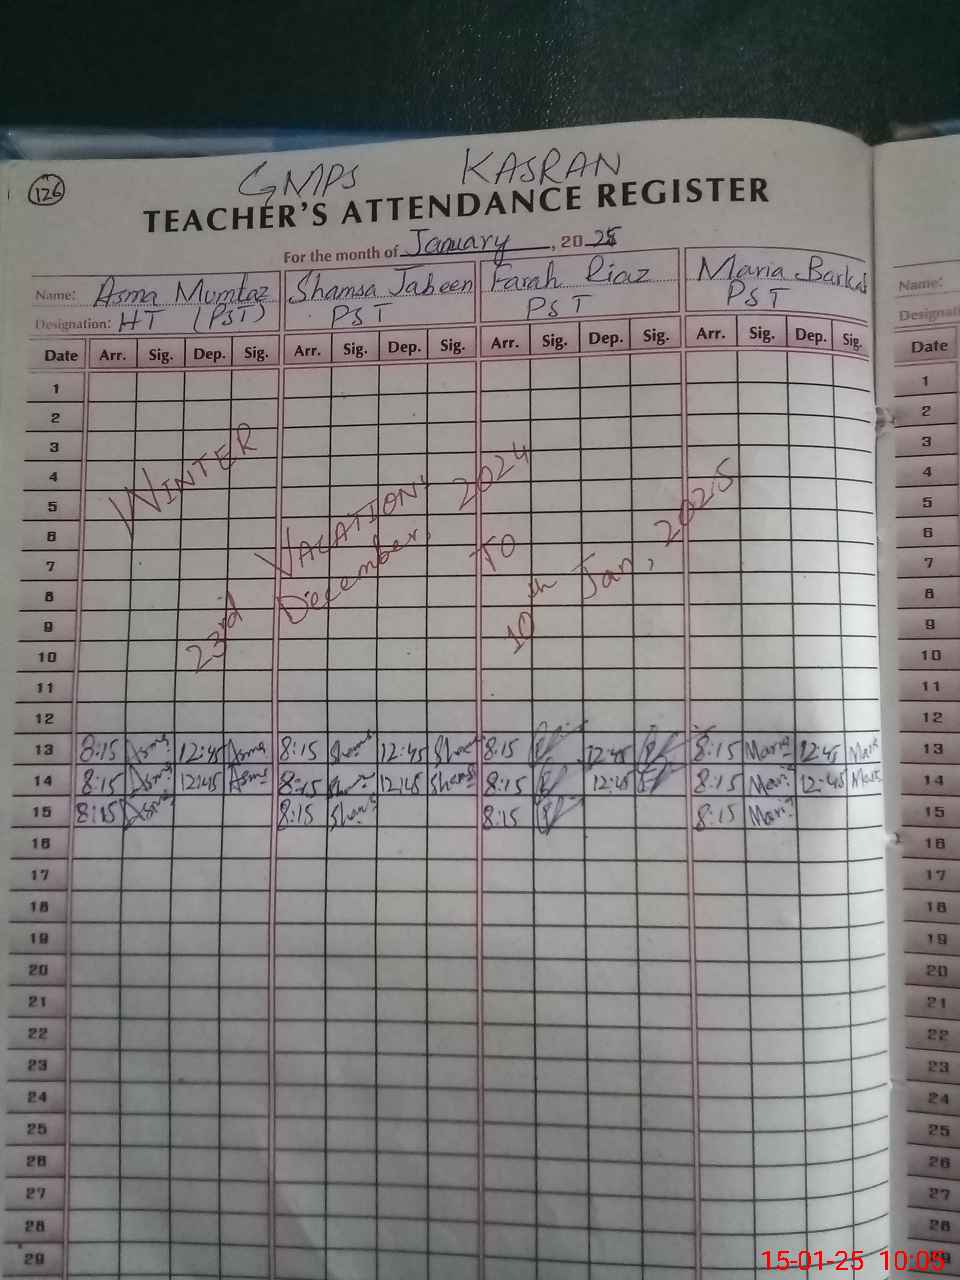 126
GMPS KASRAN
TEACHER'S ATTENDANCE REGISTER
For the month of January, 2025
Name: Asma Mumtaz Shamsa Jabeen Farah Riaz Maria Barkat Name:
Designation: HT (PST) PST PST PST
Date Arr. Sig. Dep. Sig. Arr. Sig. Dep. Sig. Arr. Sig. Dep. Sig. Arr. Sig. Dep. Sig. Date
1 1
2 2
3 3
4 4
5 5
6 6
7 7
8 8
9 9
10 10
11 11
12 12
WINTER
VACATIONS
23rd December, 2024
TO
10th Jan, 2025
13 8:15 Asma 12:45 Asma 8:15 Sham 12:45 8:15 12:45 8:15 Maria 12:45 Maria 13
14 8:15 Asma 12:45 Asma 8:15 12:45 Shams 8:15 12:45 8:15 Mari 12:45 Maria 14
15 8:15 Asma 8:15 Sham 8:15 8:15 Mari 15
16 16
17 17
18 18
19 19
20 20
21 21
22 22
23 23
24 24
25 25
26 26
27 27
28 28
29 29
15-01-25 10:05